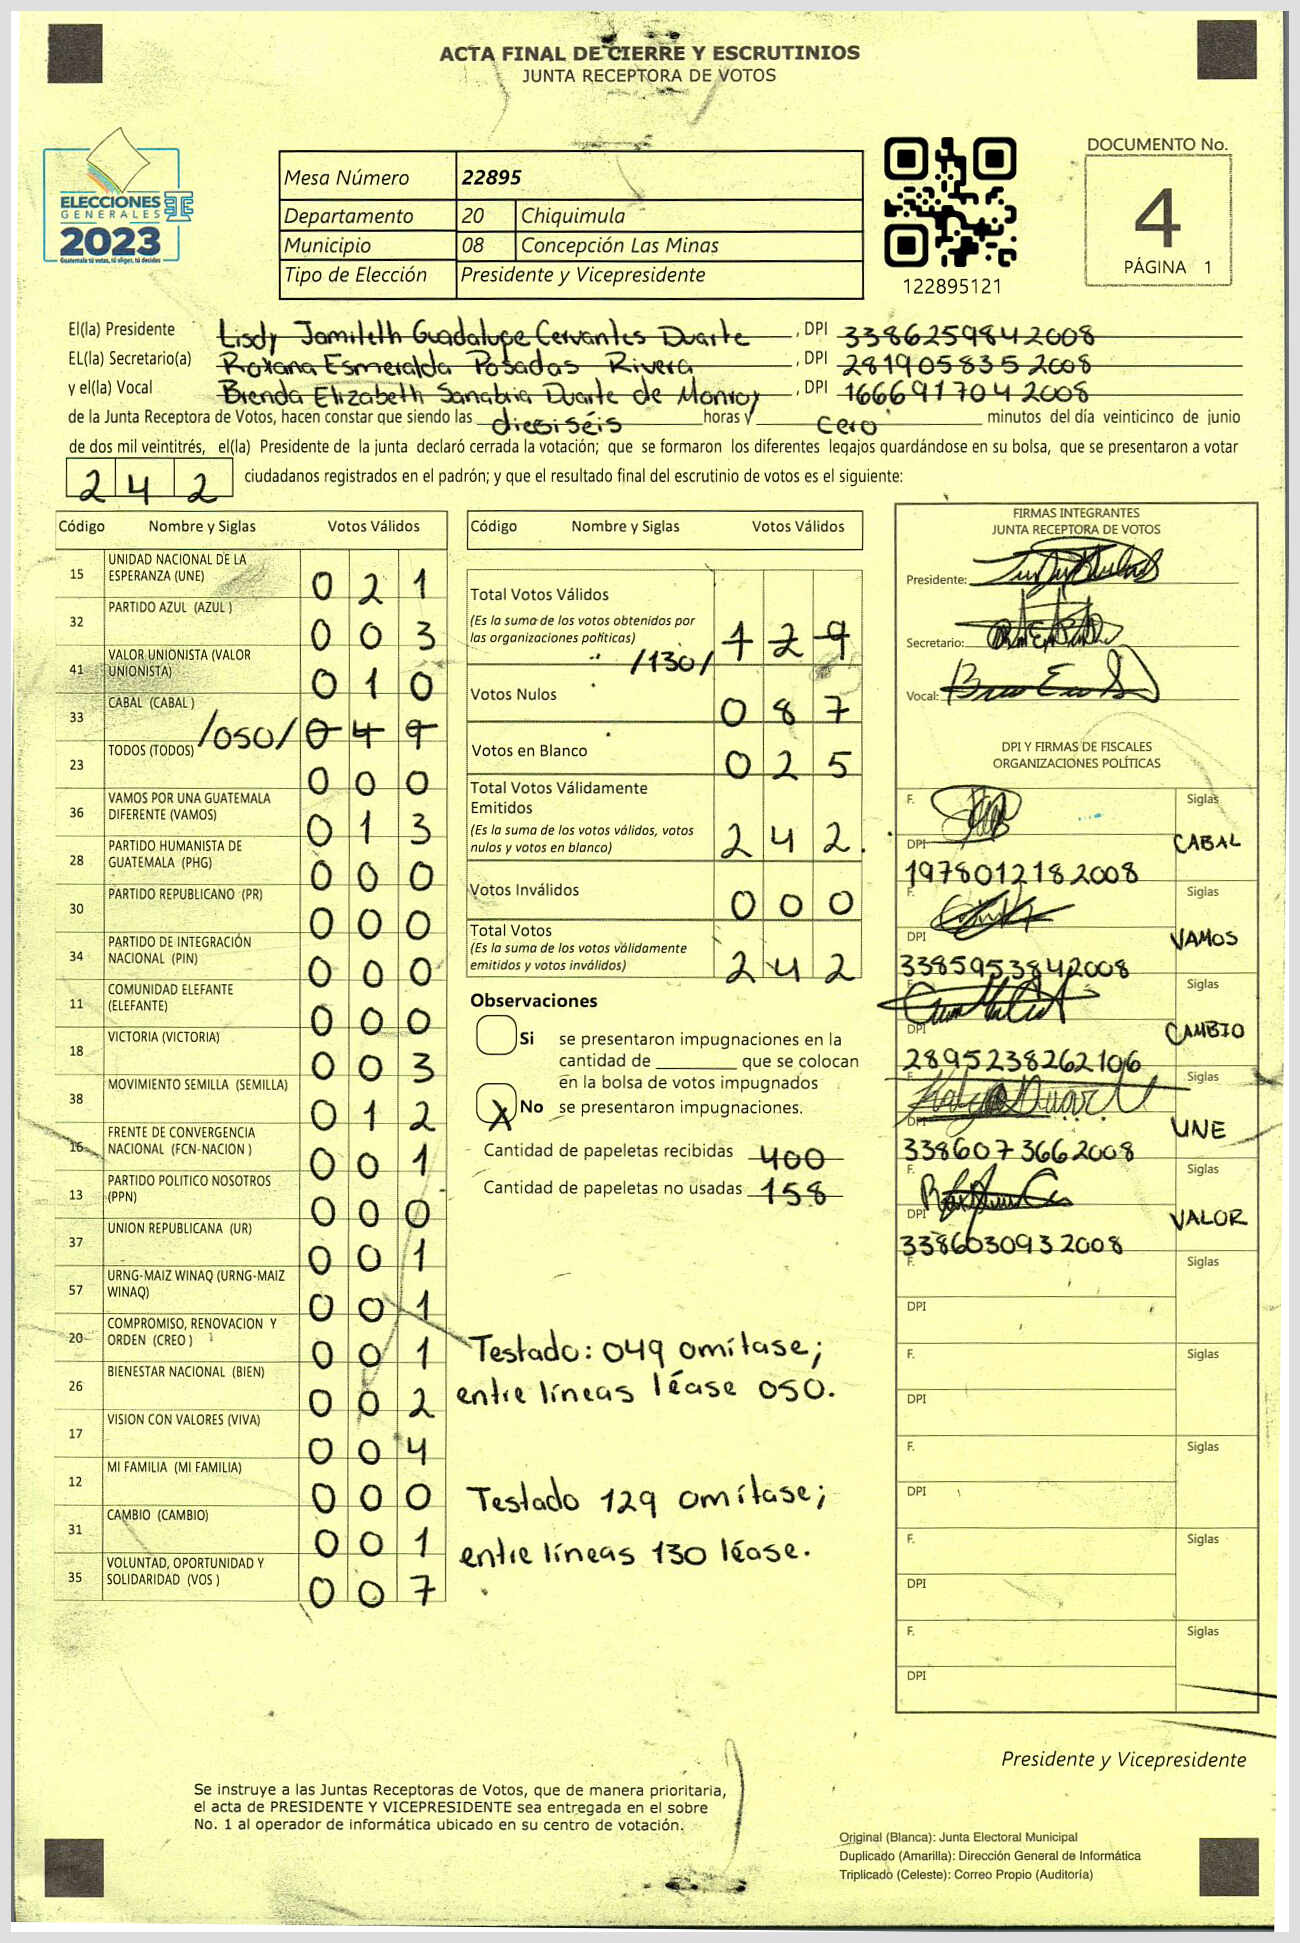 ACTA FINAL DE CIERRE Y ESCRUTINIOS
JUNTA RECEPTORA DE VOTOS
ELECCIONES
GENERALES
2023
Guatemala tú votas, tú eliges, tú decides
Mesa Número 22895
Departamento 20 Chiquimula
Municipio 08 Concepción Las Minas
Tipo de Elección Presidente y Vicepresidente
122895121
DOCUMENTO No.
4
PÁGINA 1
El(la) Presidente Lisdy Jamileth Guadalupe Cervantes Duarte, DPI 3386259842008
EL(la) Secretario(a) Roxana Esmeralda Posadas Rivera, DPI 2819058352008
y el(la) Vocal Brenda Elizabeth Sanabria Duarte de Monroy, DPI 1666917042008
de la Junta Receptora de Votos, hacen constar que siendo las dieciséis horas y cero minutos del día veinticinco de junio
de dos mil veintitrés, el(la) Presidente de la junta declaró cerrada la votación; que se formaron los diferentes legajos guardándose en su bolsa, que se presentaron a votar
242 ciudadanos registrados en el padrón; y que el resultado final del escrutinio de votos es el siguiente:
Código Nombre y Siglas Votos Válidos
15 UNIDAD NACIONAL DE LA ESPERANZA (UNE) 021
32 PARTIDO AZUL (AZUL ) 003
41 VALOR UNIONISTA (VALOR UNIONISTA) 010
33 CABAL (CABAL ) /050/ 049
23 TODOS (TODOS) 000
36 VAMOS POR UNA GUATEMALA DIFERENTE (VAMOS) 013
28 PARTIDO HUMANISTA DE GUATEMALA (PHG) 000
30 PARTIDO REPUBLICANO (PR) 000
34 PARTIDO DE INTEGRACIÓN NACIONAL (PIN) 000
11 COMUNIDAD ELEFANTE (ELEFANTE) 000
18 VICTORIA (VICTORIA) 003
38 MOVIMIENTO SEMILLA (SEMILLA) 012
16 FRENTE DE CONVERGENCIA NACIONAL (FCN-NACION ) 001
13 PARTIDO POLITICO NOSOTROS (PPN) 000
37 UNION REPUBLICANA (UR) 001
57 URNG-MAIZ WINAQ (URNG-MAIZ WINAQ) 001
20 COMPROMISO, RENOVACION Y ORDEN (CREO ) 001
26 BIENESTAR NACIONAL (BIEN) 002
17 VISION CON VALORES (VIVA) 004
12 MI FAMILIA (MI FAMILIA) 000
31 CAMBIO (CAMBIO) 001
35 VOLUNTAD, OPORTUNIDAD Y SOLIDARIDAD (VOS ) 007
Código Nombre y Siglas Votos Válidos
Total Votos Válidos
(Es la suma de los votos obtenidos por
las organizaciones políticas) /130/ 129
Votos Nulos 087
Votos en Blanco 025
Total Votos Válidamente
Emitidos
(Es la suma de los votos válidos, votos
nulos y votos en blanco) 242.
Votos Inválidos 000
Total Votos
(Es la suma de los votos válidamente
emitidos y votos inválidos) 242
Observaciones
Si se presentaron impugnaciones en la
cantidad de ________ que se colocan
en la bolsa de votos impugnados
X No se presentaron impugnaciones.
Cantidad de papeletas recibidas 400
Cantidad de papeletas no usadas 158
Testado: 049 omítase;
entre líneas léase 050.
Testado 129 omítase;
entre líneas 130 léase.
FIRMAS INTEGRANTES
JUNTA RECEPTORA DE VOTOS
Presidente:
Secretario:
Vocal:
DPI Y FIRMAS DE FISCALES
ORGANIZACIONES POLÍTICAS
F. Siglas
DPI CABAL
1978012182008
F. Siglas
DPI VAMOS
3385953842008
Siglas
DPI CAMBIO
2895238262106
F. Siglas
DPI UNE
3386073662008
F. Siglas
DPI VALOR
3386030932008
F. Siglas
DPI
F. Siglas
DPI
F. Siglas
DPI
F. Siglas
DPI
F. Siglas
DPI
Presidente y Vicepresidente
Se instruye a las Juntas Receptoras de Votos, que de manera prioritaria,
el acta de PRESIDENTE Y VICEPRESIDENTE sea entregada en el sobre
No. 1 al operador de informática ubicado en su centro de votación.
Original (Blanca): Junta Electoral Municipal
Duplicado (Amarilla): Dirección General de Informática
Triplicado (Celeste): Correo Propio (Auditoría)